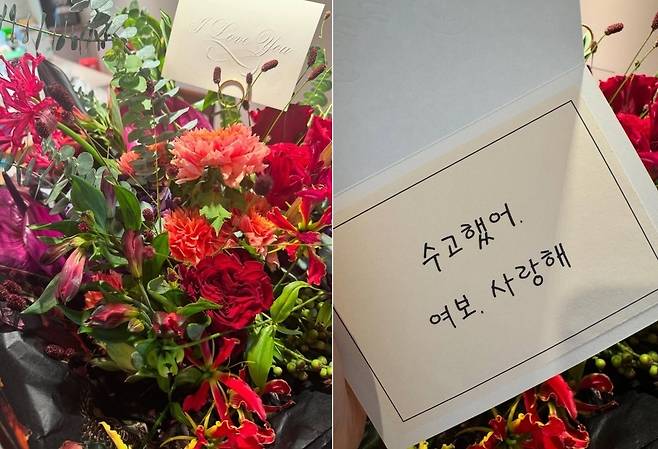 I Love You
수고했어.
여보. 사랑해